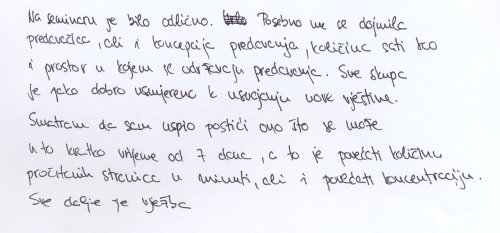 Na seminaru je bilo odlično. Posebno me se dojmila
predavačica, ali i koncepcija predavanja, količina sati kao
i prostor u kojem se održavaju predavanja. Sve skupa
je jako dobro usmjereno k usvajanju nove vještine.
Smatram da sam uspio postići ono što se može
u to kratko vrijeme od 7 dana, a to je povećati količinu
pročitanih stranica u minuti, ali i povećati koncentraciju.
Sve dalje je vježba